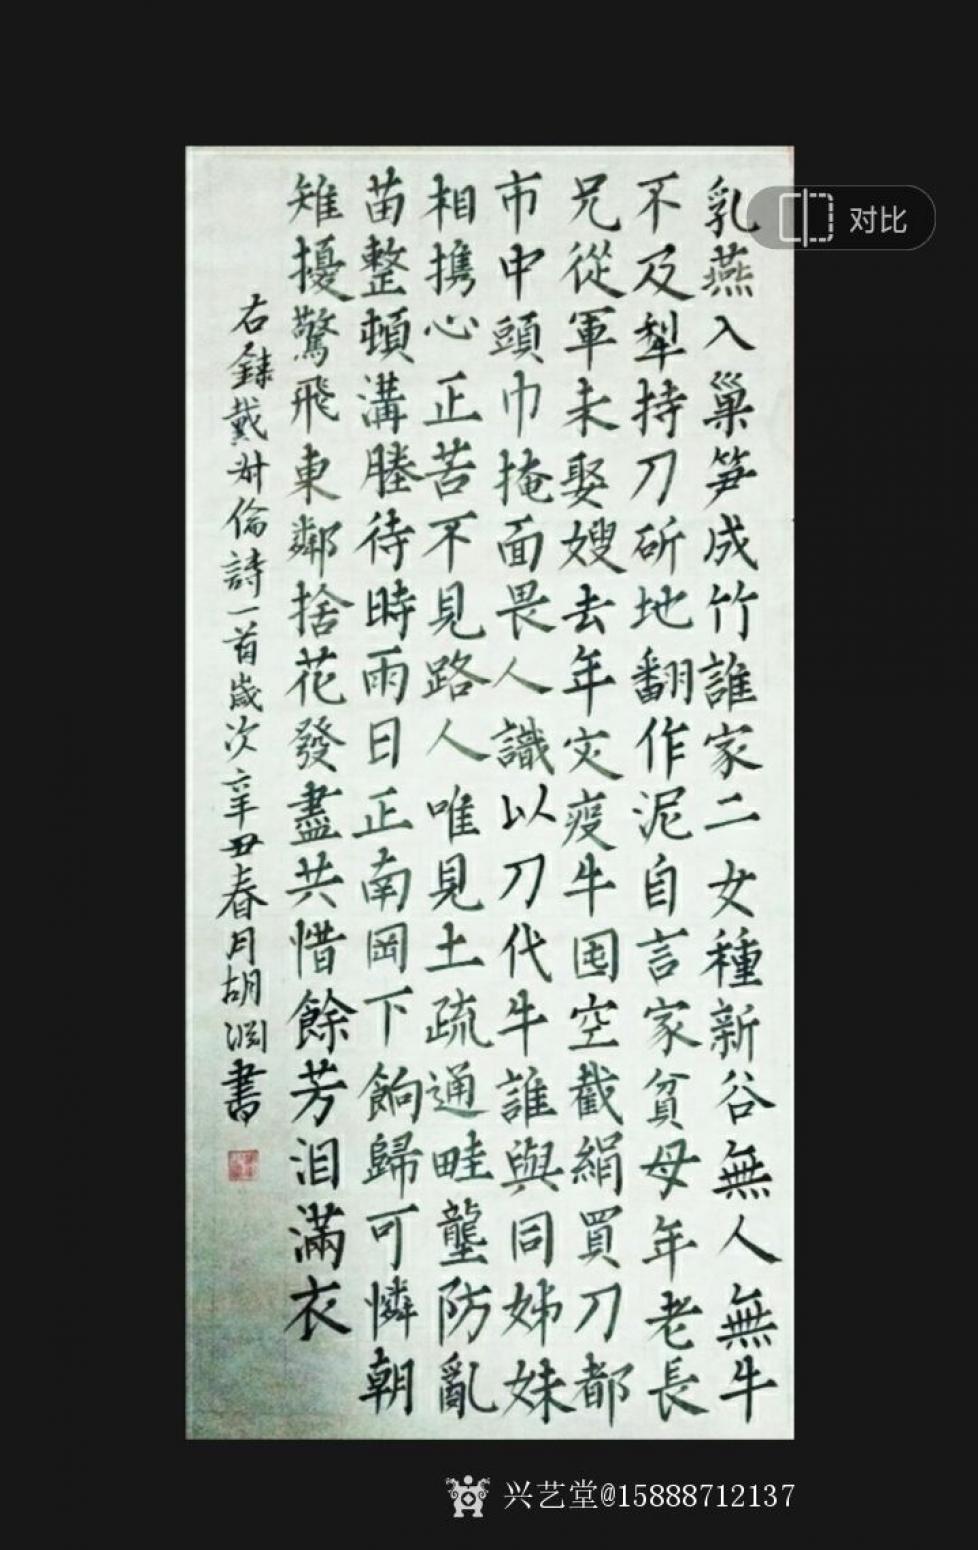 乳燕入巢笋成竹誰家二女種新谷無人無牛
不及犁持刀斫地翻作泥自言家貧母年老長
兄從軍未娶嫂去年灾疫牛囤空截絹買刀都
市中頭巾掩面畏人識以刀代牛誰與同姊妹
相携心正苦不見路人唯見土疏通畦壟防亂
苗整頓溝塍待時雨日正南岡下餉歸可憐朝
雉擾驚飛東鄰捨花發盡共惜餘芳泪滿衣
右録戴叔倫詩一首歲次辛丑春月胡淵書
对比
兴艺堂@15888712137